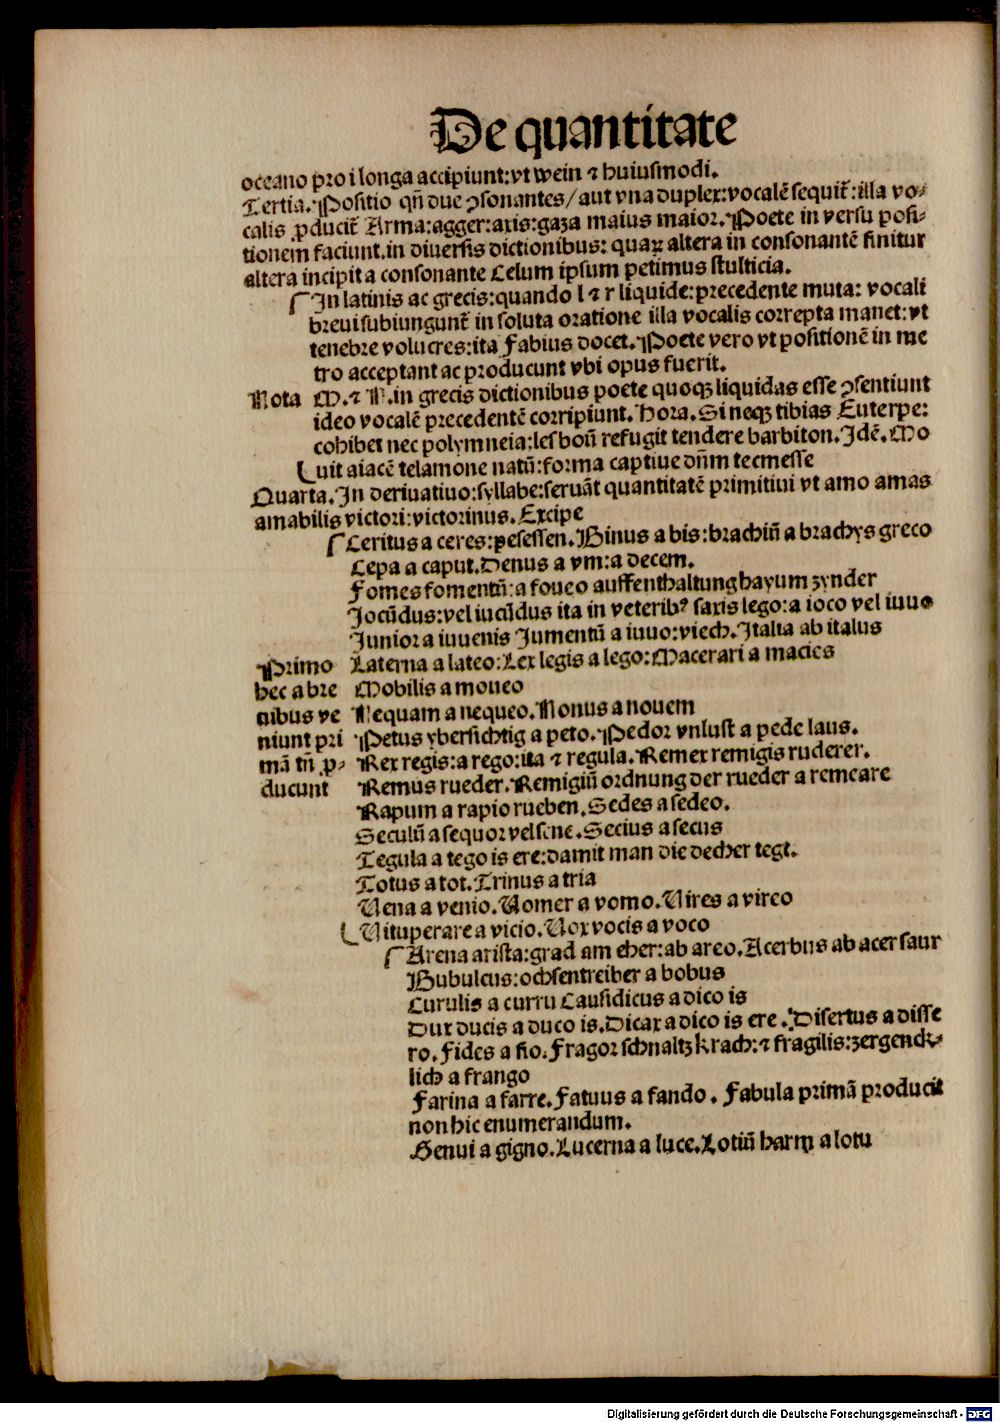 De quantitate
oceano pro i longa accipiunt: vt wein ⁊ huiusmodi.
Tertia. Positio qñ due ↄsonantes/ aut vna duplex: vocalē sequit̃: illa vo-
calis ꝓducit̃ Arma: agger: axis: gaza maius maior. Poete in versu posi-
tionem faciunt. in diuersis dictionibus: quaꝝ altera in consonantē finitur
altera incipit a consonante Celum ipsum petimus stulticia.
In latinis ac grecis: quando l ⁊ r liquide: precedente muta: vocali
breui subiungunt̃ in soluta oratione illa vocalis correpta manet: vt
tenebre volucres: ita Fabius docet. Poete vero vt positionē in me
tro acceptant ac producunt vbi opus fuerit.
Nota M. ⁊ N. in grecis dictionibus poete quoqꝫ liquidas esse ↄsentiunt
ideo vocalē precedentē corripiunt. Hora. Si neqꝫ tibias Euterpe:
cohibet nec polymneia: lesboū refugit tendere barbiton. Idē. Mo
uit aiacē telamone natū: forma captiue dñm tecmesse
Quarta. In deriuatiuo: syllabe: seruāt quantitatē primitiui vt amo amas
amabilis victori: victorinus. Excipe
Ceritus a ceres: pesessen. Binus a bis: brachiū a brachys greco
Cepa a caput. Denus a vm: a decem.
Fomes fomentū: a foueo auffenthaltung hayum zynder
Jocūdus: vel iucūdus ita in veterib⁹ saxis lego: a ioco vel iuuo
Junior a iuuenis Jumentū a iuuo: viech. Italia ab italus
Primo Laterna a lateo: Lex legis a lego: Macerari a macies
hec a bre Mobilis a moueo
uibus ve Nequam a nequeo. Nonus a nouem
niunt pri Petus ybersichtig a peto. Pedor vnlust a pede laus.
mā tñ ꝓ- Rex regis: a rego: ita ⁊ regula. Remex remigis ruderer.
ducunt Remus rueder. Remigiū ordnung der rueder a remeare
Rapum a rapio rueben. Sedes a sedeo.
Seculū a sequor vel sene. Secius a secus
Tegula a tego is ere: damit man die decher tegt.
Totus a tot. Trinus a tria
Vena a venio. Vomer a vomo. Vires a vireo
Vituperare a vicio. Vox vocis a voco
Arena arista: grad am eher: ab areo. Acerbus ab acer saur
Bubulcus: ochsentreiber a bobus
Curulis a curru Causidicus a dico is
Dux ducis a duco is. Dicax a dico is ere. Disertus a disse
ro. Fides a fio. Fragor schnaltz krach: ⁊ fragilis: zergenck-
lich a frango
Farina a farre. Fatuus a fando. Fabula primā producit
non hic enumerandum.
Genui a gigno. Lucerna a luce. Lotiū harm a lotu
Digitalisierung gefördert durch die Deutsche Forschungsgemeinschaft - DFG